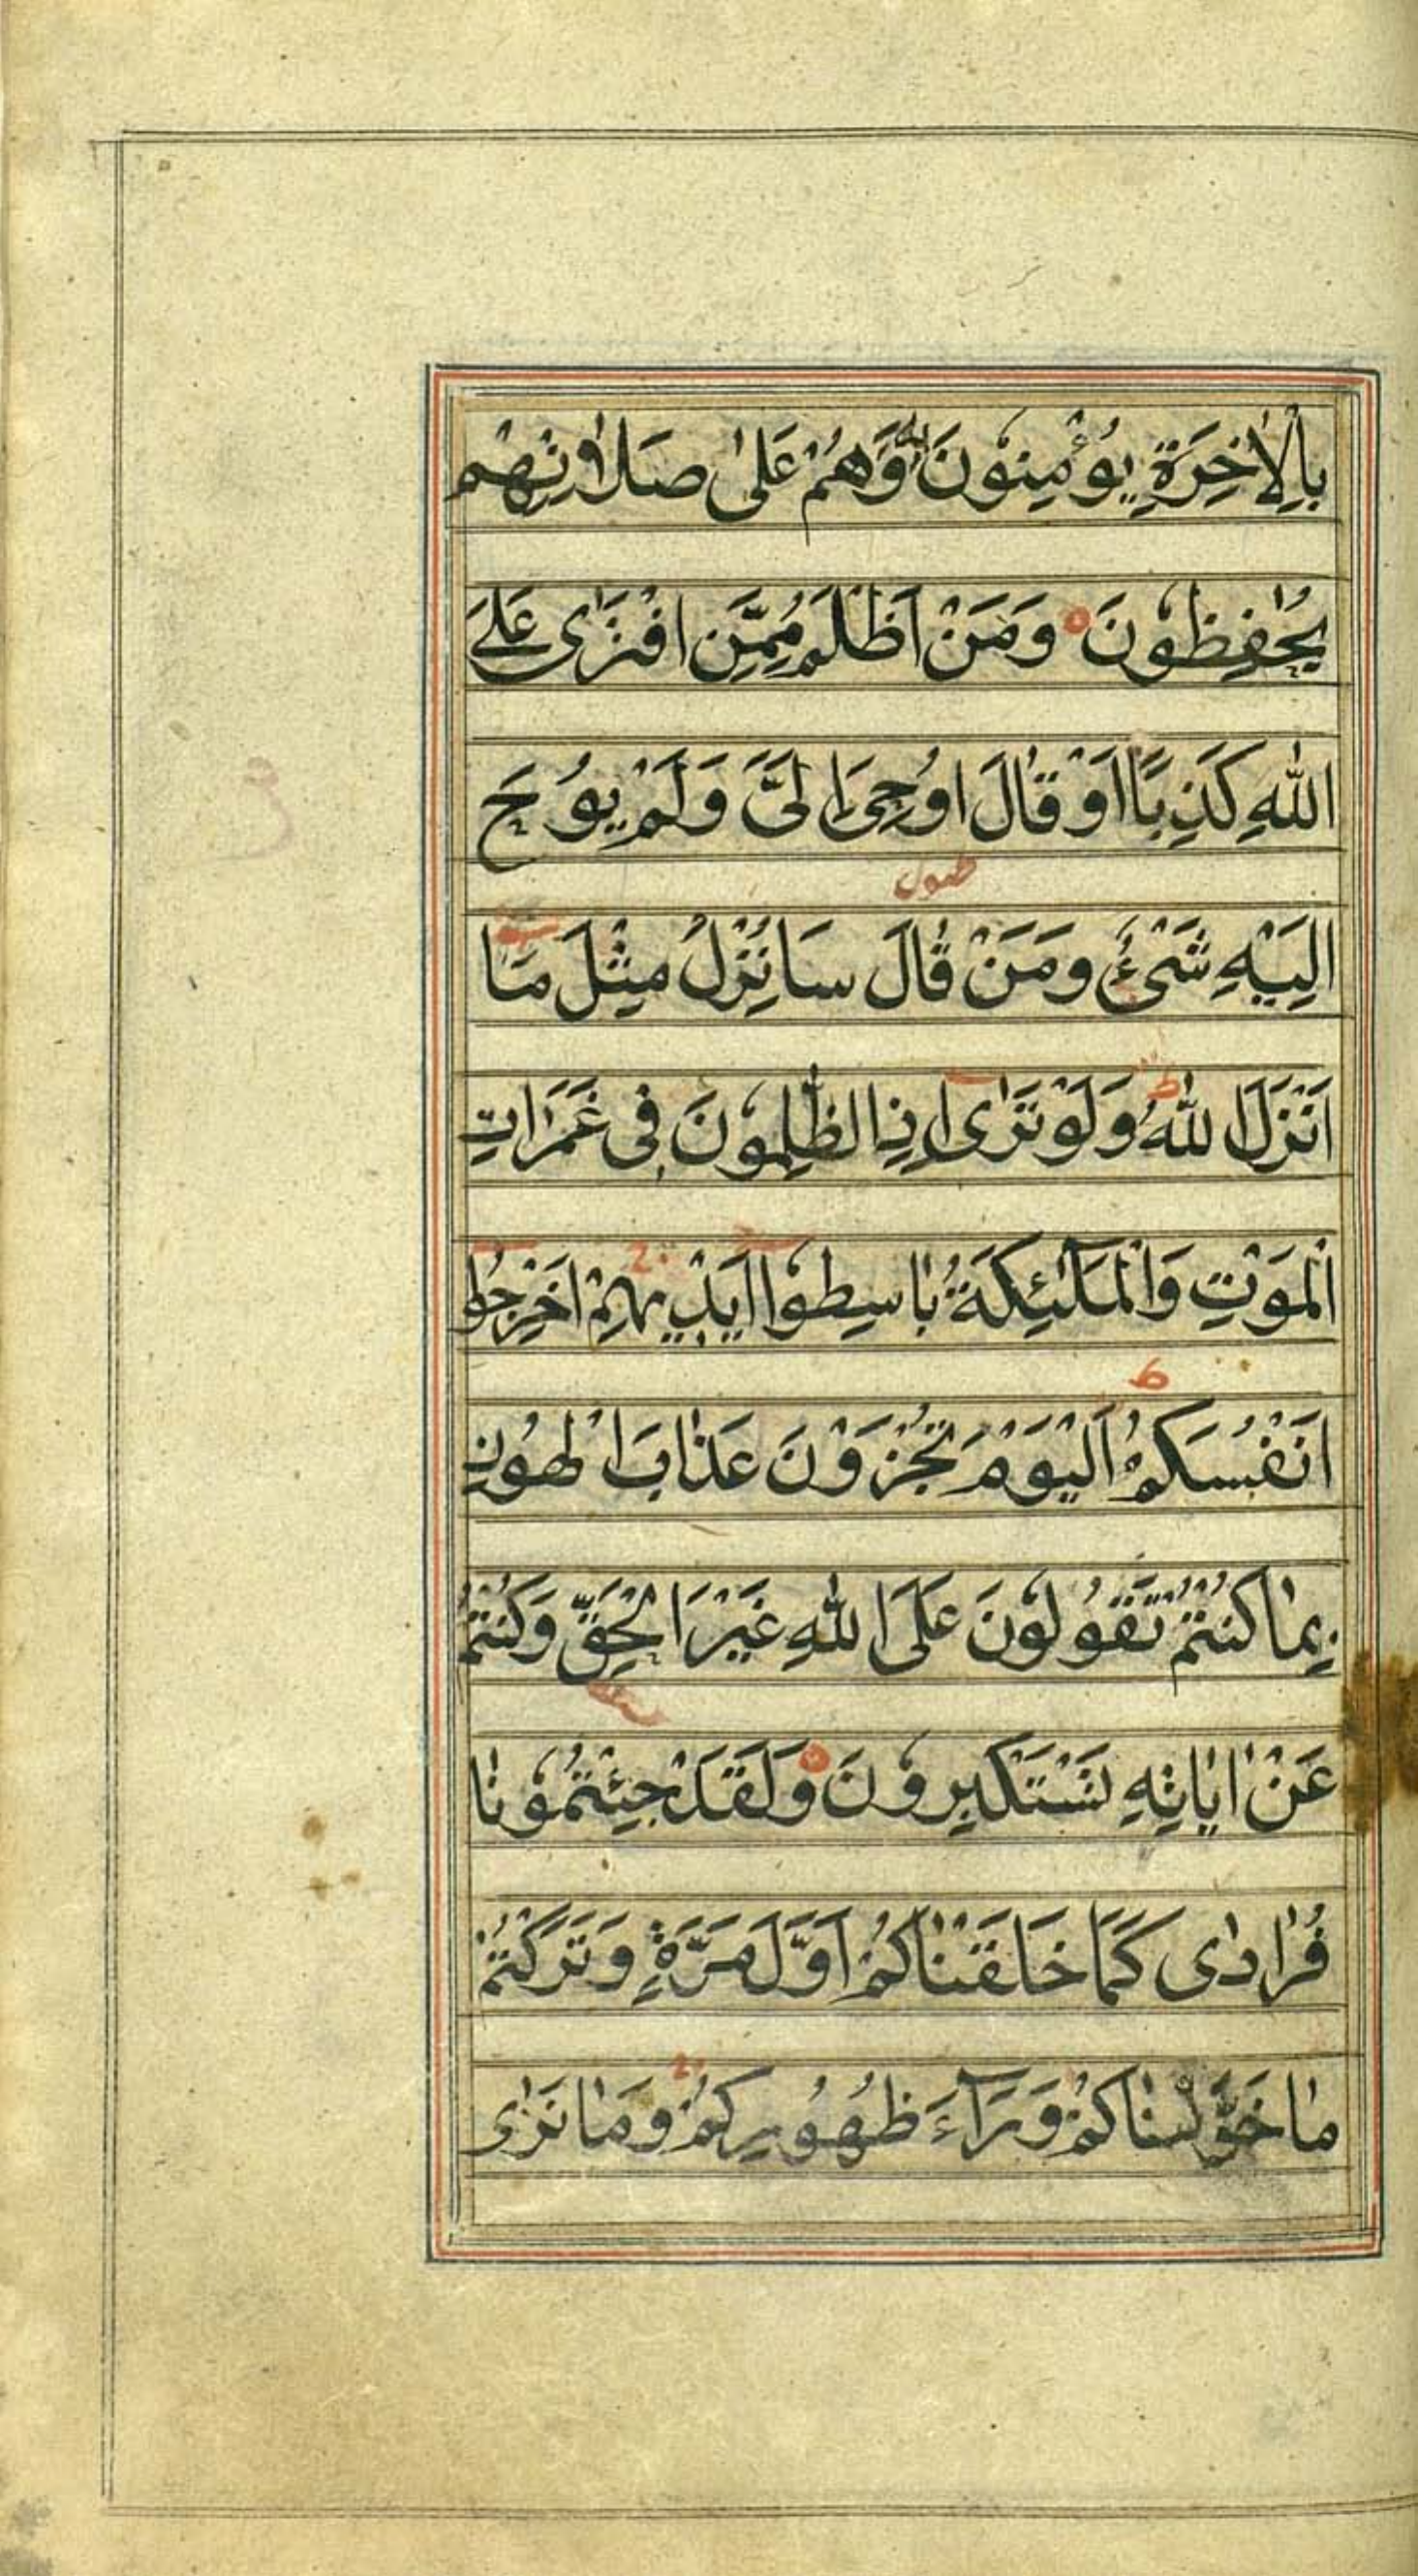 بِالْاٰخِرَةِ يُؤْمِنُوْنَ بِهٖ وَهُمْ عَلٰى صَلَاتِهِمْ
يُحٰفِظُوْنَ وَمَنْ اَظْلَمُ مِمَّنِ افْتَرٰى عَلَى
اللّٰهِ كَذِبًا اَوْ قَالَ اُوْحِىَ اِلَىَّ وَلَمْ يُوْحَ
اِلَيْهِ شَىْءٌ وَمَنْ قَالَ سَاُنْزِلُ مِثْلَ مَا
اَنْزَلَ اللّٰهُ ط وَلَوْ تَرٰى اِذِ الظّٰلِمُوْنَ فِى غَمَرَاتِ
الْمَوْتِ وَالْمَلٰٓئِكَةُ بَاسِطُوْا اَيْدِيْهِمْ ج اَخْرِجُوْا
اَنْفُسَكُمْ ط اَلْيَوْمَ تُجْزَوْنَ عَذَابَ الْهُوْنِ
بِمَا كُنْتُمْ تَقُوْلُوْنَ عَلَى اللّٰهِ غَيْرَ الْحَقِّ وَكُنْتُمْ
عَنْ اٰيَاتِهٖ تَسْتَكْبِرُوْنَ وَلَقَدْ جِئْتُمُوْنَا
فُرَادٰى كَمَا خَلَقْنَاكُمْ اَوَّلَ مَرَّةٍ وَتَرَكْتُمْ
مَا خَوَّلْنَاكُمْ وَرَآءَ ظُهُوْرِكُمْ ج وَمَا نَرٰى